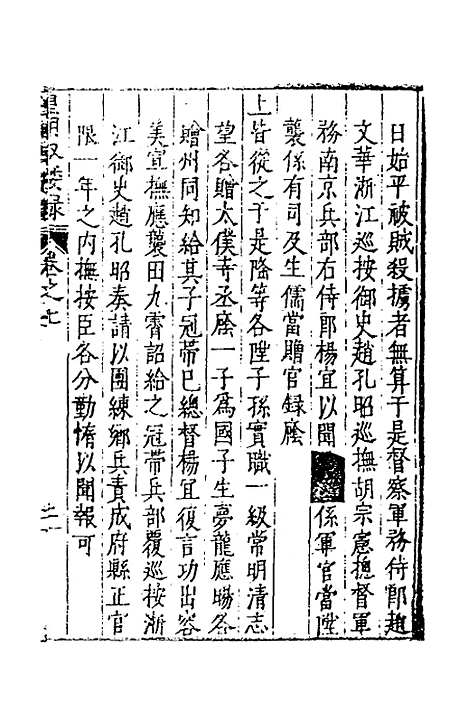 日始平被賊殺擄者無算于是督察軍務侍郎趙
文華浙江巡按御史趙孔昭巡撫胡宗憲總督軍
務南京兵部右侍郎楊宜以聞係軍官當陞
襲係有司及生儒當贈官録廕
上皆從之于是隆等各陞子孫實職一級常明清志
望各贈太僕寺丞廕一子爲國子生夢龍應暘各
贈州同知給其子冠帶巳總督楊宜復言功出容
美宣撫應襲田九霄詔給之冠帶兵部覆巡按浙
江御史趙孔昭奏請以團練鄉兵責成府縣正官
限一年之内撫按臣各分勤惰以聞報可
皇明馭倭録
卷之七